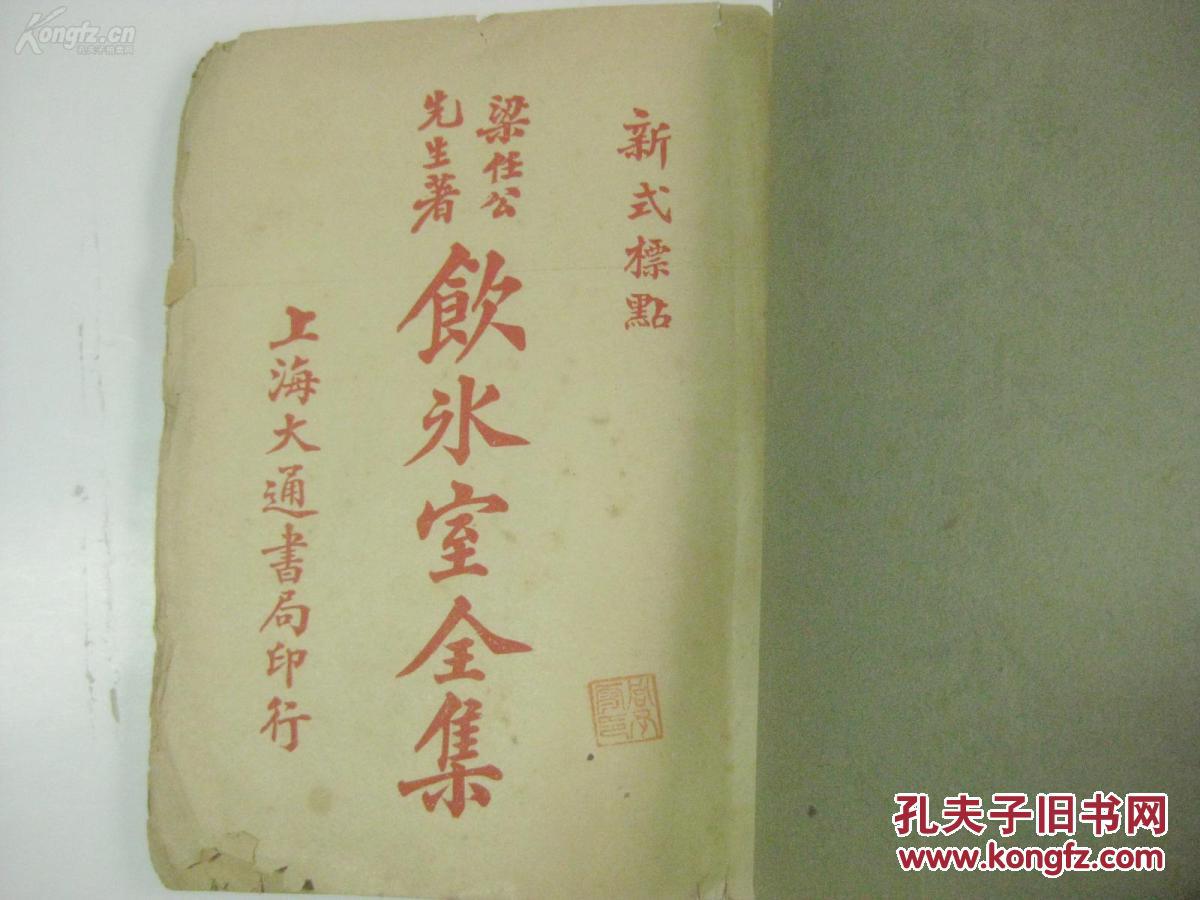 新式標點
梁任公
先生著
飲冰室全集
上海大通書局印行
Kongfz.cn
孔夫子拍卖网
孔夫子旧书网
www.kongfz.com